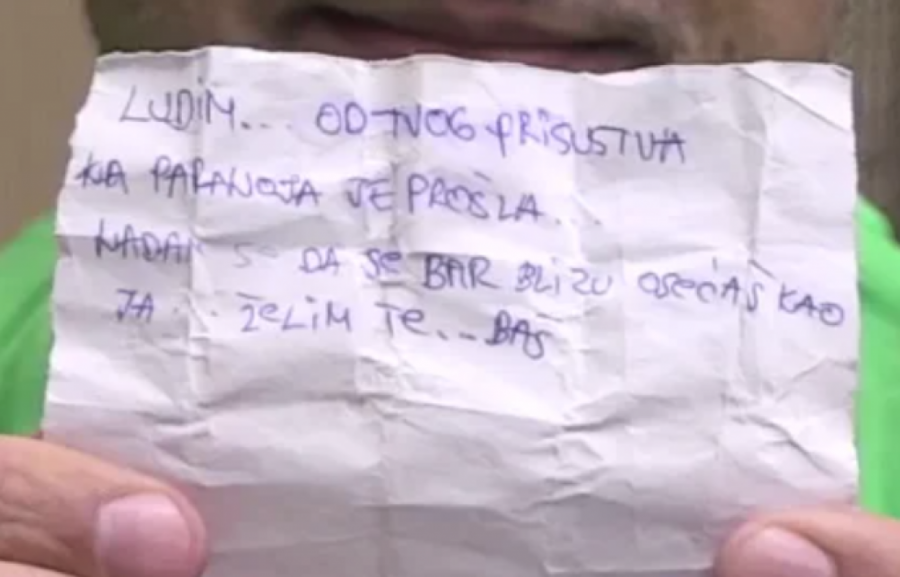 LUDIM... OD TVOG PRISUSTVA
PARANOJA JE PROŠLA...
NADAM SE DA SE BAR BLIZU OSEĆAŠ KAO
JA... ŽELIM TE... BAŠ